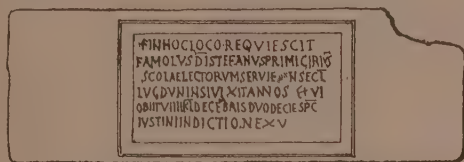 ✝INHOCLOCO·REQVIESCIT
FAMOLVSDISTEFANVSPRIMICIRIVS
SCOLAELECTORVMSERVIENS
LVGDVNINSIVIXITANNOS
OBIITVIIII DECEBRISDVODECIESPC
IVSTINIINDICTIONEXV